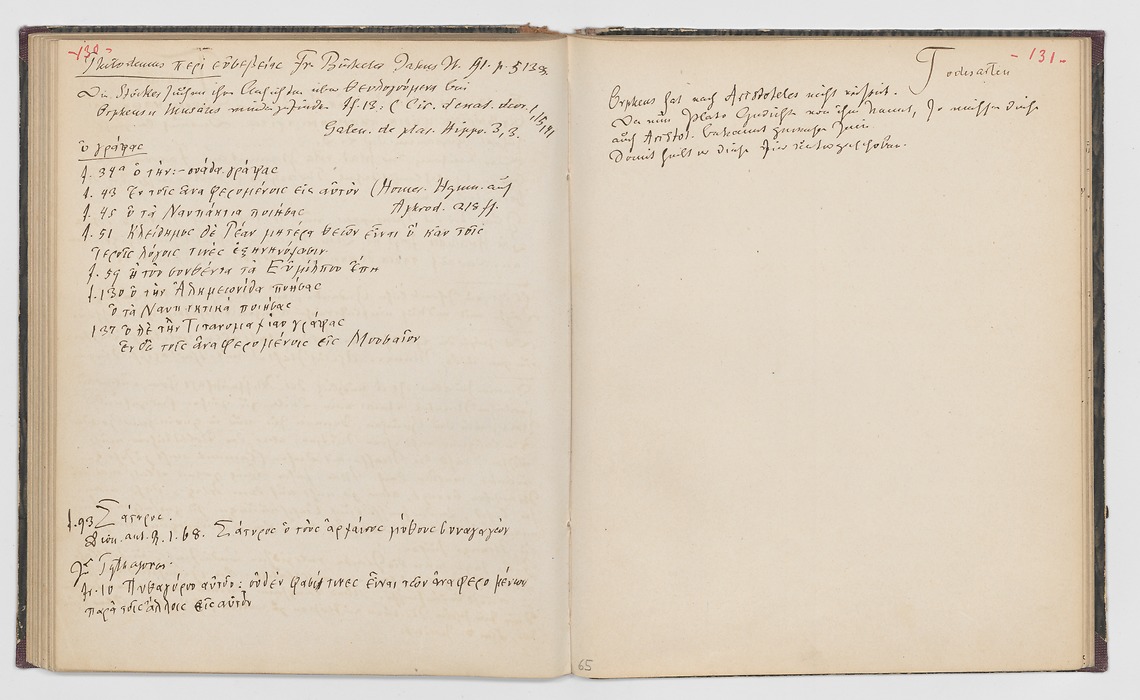 -130-
Philodemus περὶ εὐσεβείας Fr. Bücheler Jahns Jb. 91. p. 513ff.
Die Stoiker suchen ihre Ansichten über Θεολογούμενα bei
Orpheus u Musäus wiederzufinden If. 13: (Cic. d. nat. deor. 1,15,41
Galen. de plac. Hippo. 3, 3.
ὁ γράψας
f. 34a ὁ τὴν γράψας
f. 43 Ἐν τοῖς ἀναφερομένοις εἰς αὐτὸν (Homer. Hymn. auf
f. 45 ὁ τὰ Ναυπάκτια ποιήσας Aphrod. 21sff.
f. 51 Κλείδημος δὲ Ῥέαν μητέρα θεῶν εἶναι ὃ κἀν τοῖς
Ἱεροῖς λόγοις τινὲς ἐξηνηνόχασιν.
f. 59 ἢ τὸν συνθέντα τὰ Εὐμόλπου ἔπη
f. 130 ὁ τὴν Ἀλκμεωνίδα ποιήσας
ὁ τὰ Ναυπακτικὰ ποιήσας
137 ὁ δὲ τὴν Τιτανομαχίαν γράψας
Ἐν δὲ τοῖς ἀναφερομένοις εἰς Μουσαῖον
f. 93 Σάτυρος.
Dion. ant. R. 1. 68. Σάτυρος ὁ τοὺς ἀρχαίους μύθους συναγαγών
Pythagoras.
fr. 10 Πυθαγόρου αὐτοῦ: οὐδέν φασί τινες εἶναι τῶν ἀναφερομένων
παρὰ τοῖς ἄλλοις εἰς αὐτὸν
-131-
Todesarten
Orpheus hat nach Aristoteles nicht existirt.
Da nun Plato Gedichte von ihm kennt, so müssen diese
auch Aristot. bekannt gewesen sein
Damit hielt er diese für untergeschoben.
65